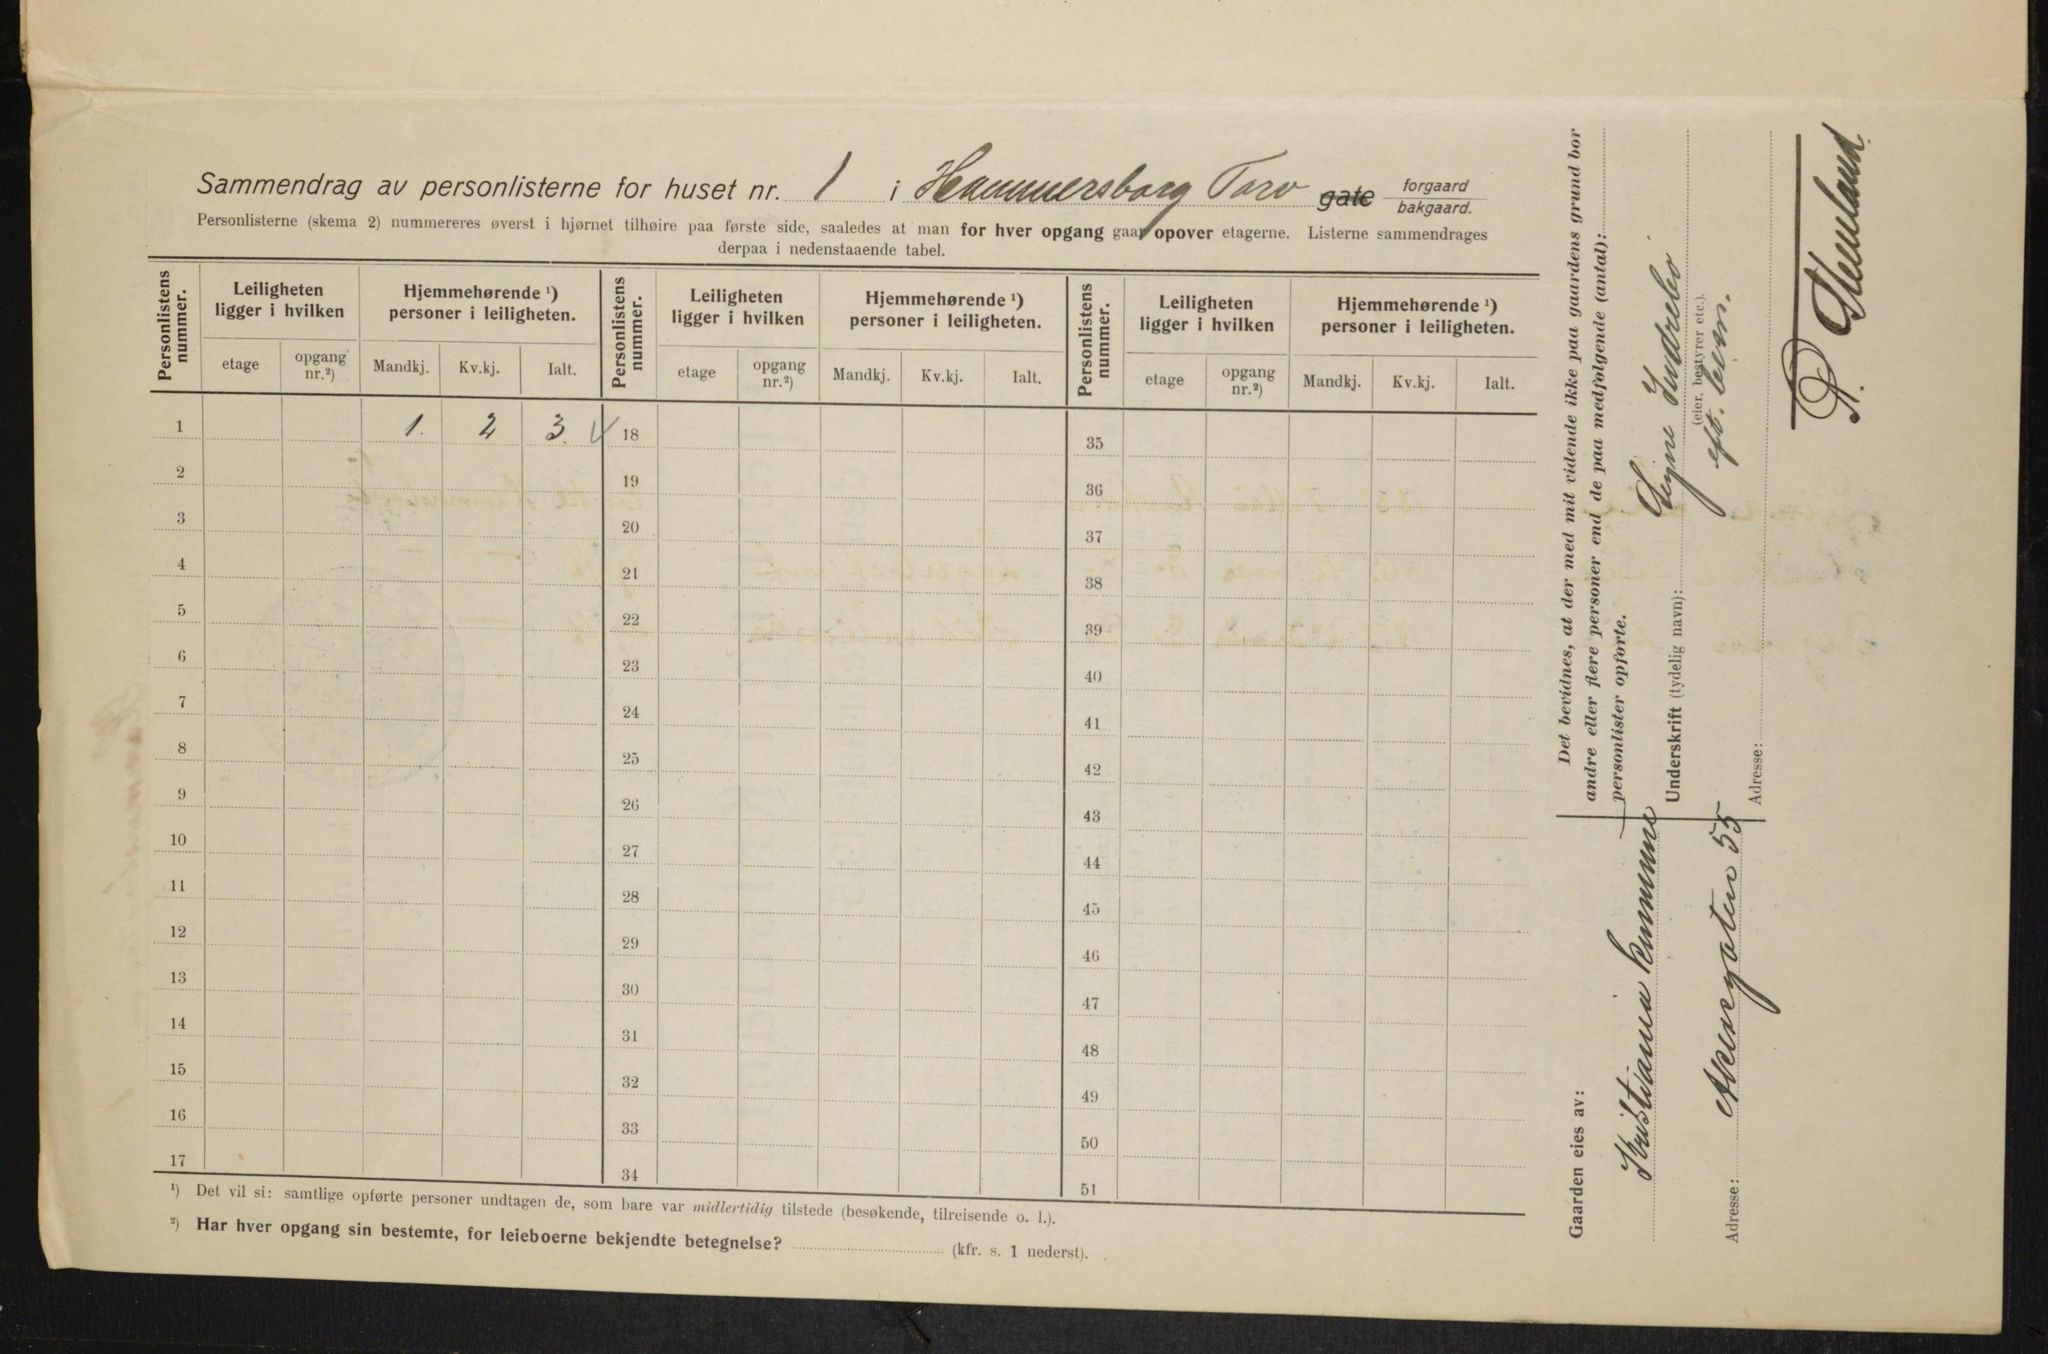 Sammendrag av personlisterne for huset nr. 1 i Hammersborg Torv gate forgaard bakgaard.
Personlisterne (skema 2) nummereres øverst i hjørnet tilhøire paa første side, saaledes at man for hver opgang gaar opover etagerne. Listerne sammendrages
derpaa i nedenstaaende tabel.
Personlistens nummer. Leiligheten ligger i hvilken Hjemmehørende ¹) personer i leiligheten. Personlistens nummer. Leiligheten ligger i hvilken Hjemmehørende ¹) personer i leiligheten. Personlistens nummer. Leiligheten ligger i hvilken Hjemmehørende ¹) personer i leiligheten.
etage opgang nr.²) Mandkj. Kv.kj. Ialt. etage opgang nr.²) Mandkj. Kv.kj. Ialt. etage opgang nr.²) Mandkj. Kv.kj. Ialt.
1 1. 2 3. 18 35
2 19 36
3 20 37
4 21 38
5 22 39
6 23 40
7 24 41
8 25 42
9 26 43
10 27 44
11 28 45
12 29 46
13 30 47
14 31 48
15 32 49
16 33 50
17 34 51
¹) Det vil si: samtlige opførte personer undtagen de, som bare var midlertidig tilstede (besøkende, tilreisende o. l.).
²) Har hver opgang sin bestemte, for leieboerne bekjendte betegnelse? (kfr. s. 1 nederst).
Det bevidnes, at der med mit vidende ikke paa gaardens grund bor
andre eller flere personer end de paa medfølgende (antal):
personlister opførte.
Underskrift (tydelig navn): Signe Indrebø
(eier, bestyrer etc.).
eft. leien.
Adresse:
P. Stenland.
Gaarden eies av:
Kristiania kommune
Adresse: Akersgaten 55